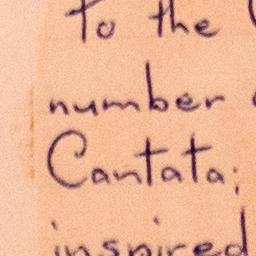 to the
number
Cantata;
inspired